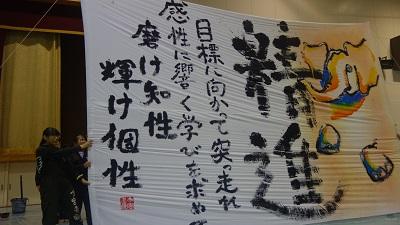 精進
目標に向かって突っ走れ
感性に響く学びを求め
磨け知性
輝け個性